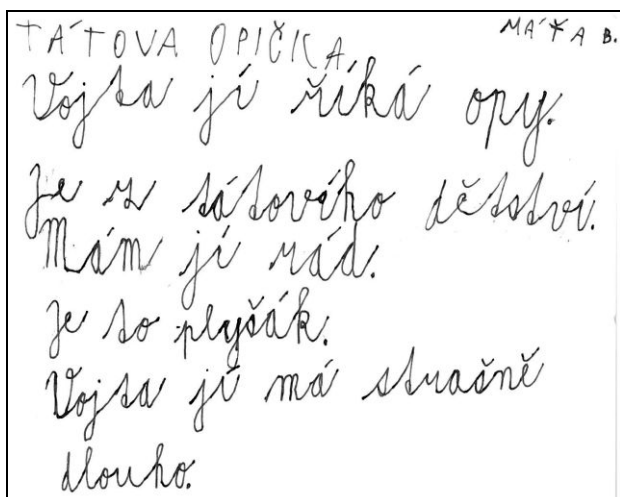 TÁTOVA OPIČKA MÁŤA B.
Vojta jí říká opy.
Je z tátového dětství.
Mám jí rád.
Je to plyšák.
Vojta jí má strašně
dlouho.